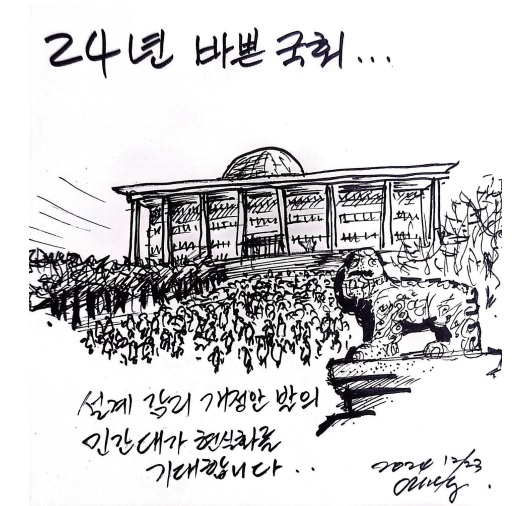 24년 바쁜 국회...
설계 감리 개정안 발의
민간대가 현실화를
기대합니다..
2024 12/23